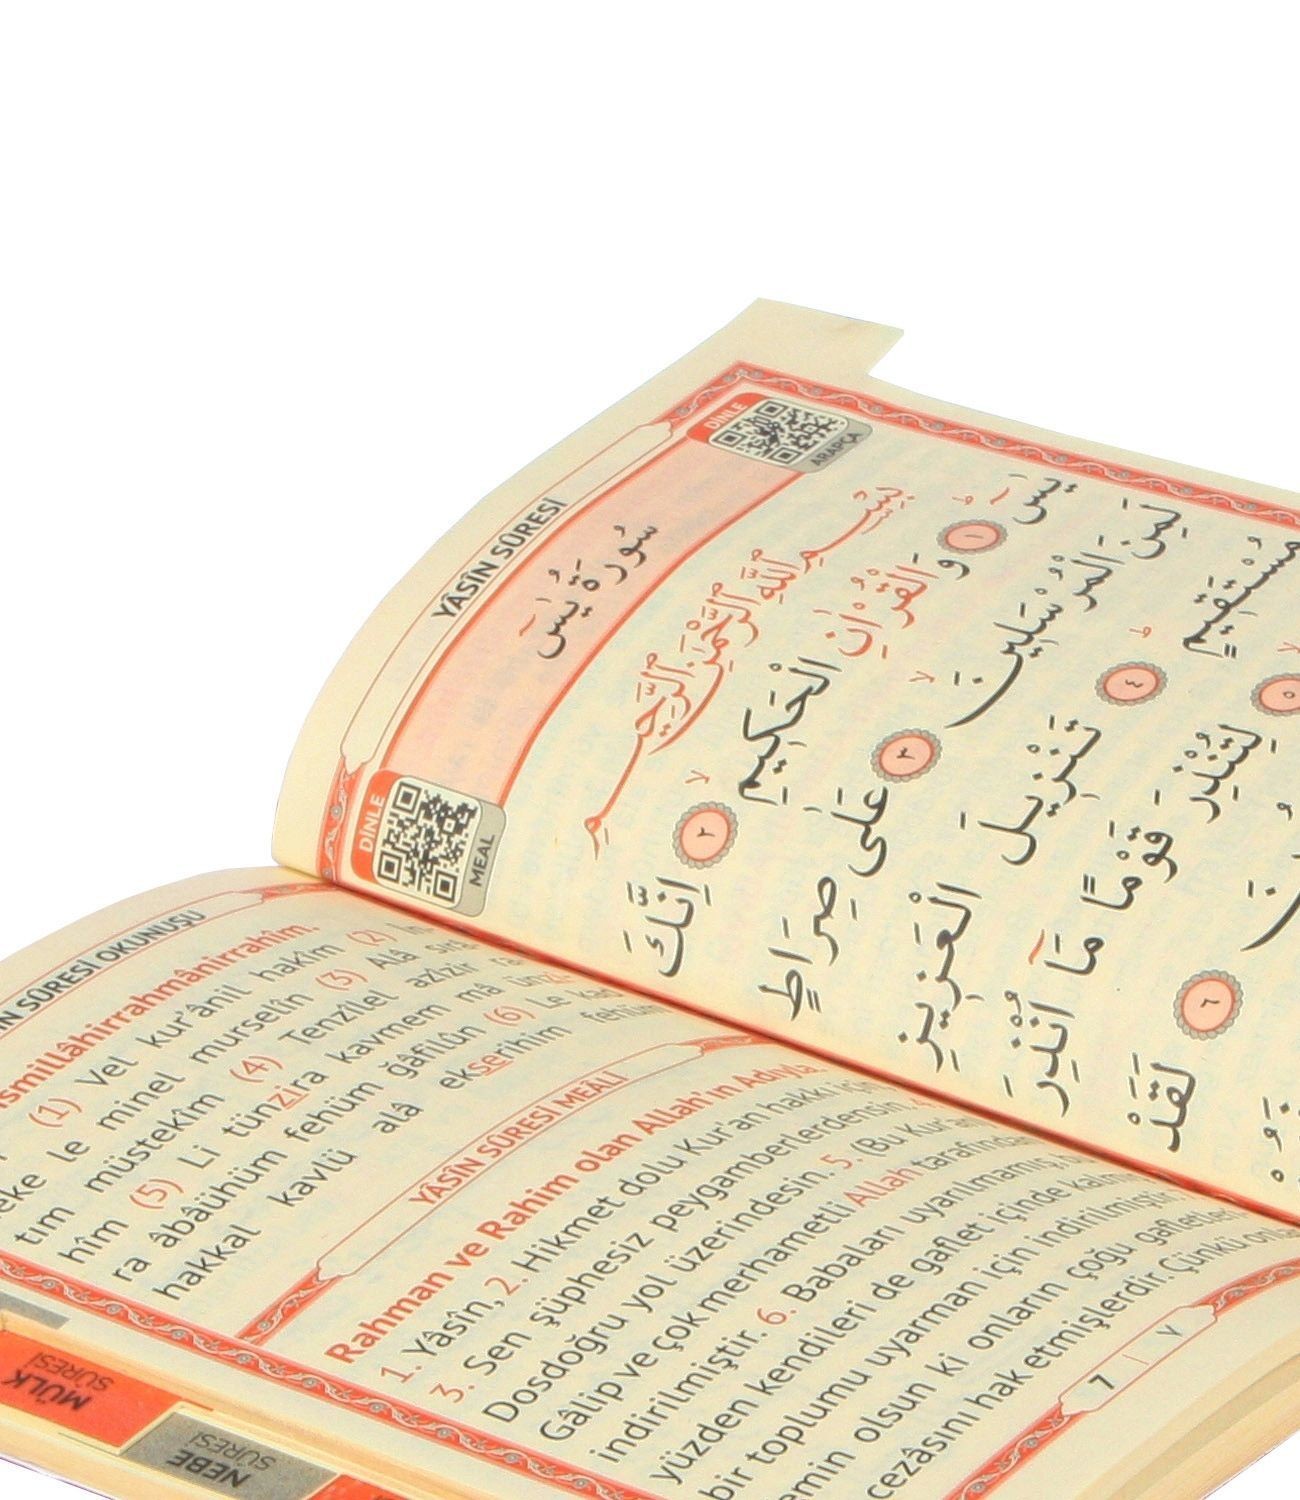 YÂSÎN SÛRESİ
DİNLE
ARAPÇA
سُورَةُ يٰسٓ
DİNLE
MEAL
بِسْمِ اللّٰهِ الرَّحْمٰنِ الرَّحِيمِ
يٰسٓ ۚ ﴿١﴾ وَالْقُرْاٰنِ الْحَكِيمِ ۙ ﴿٢﴾ اِنَّكَ
لَمِنَ الْمُرْسَلِينَ ۙ ﴿٣﴾ عَلٰى صِرَاطٍ
مُسْتَقِيمٍ ۜ ﴿٤﴾ تَنْزِيلَ الْعَزِيزِ
﴿٥﴾ لِتُنْذِرَ قَوْمًا مَٓا اُنْذِرَ
﴿٦﴾ لَقَدْ
SÛRESİ OKUNUŞU
(1) Vel kur'ânil hakîm (2) İn
neke le minel murselîn (3) Alâ sırâ
tım müstekîm (4) Tenzîlel azîzir ra
hîm (5) Li tünzira kavmem mâ ünzi
ra âbâühüm fehüm ğâfilûn (6) Le kad
hakkal kavlü alâ ekserihim fehüm
YÂSÎN SÛRESİ MEÂLİ
Rahman ve Rahim olan Allah'ın Adıyla.
1. Yâsîn, 2. Hikmet dolu Kur'an hakkı için
3. Sen şüphesiz peygamberlerdensin. 4.
Dosdoğru yol üzerindesin. 5. (Bu Kur'an
Gâlip ve çok merhametli Allah tarafından
indirilmiştir. 6. Babaları uyarılmamış,
yüzden kendileri de gaflet içinde kalmış
bir toplumu uyarman için indirilmiştir.
emin olsun ki onların çoğu gafletleri
cezâsını hak etmişlerdir. Çünkü
7 | ٧
MÜLK
SÛRESİ
NEBE
SÛRESİ